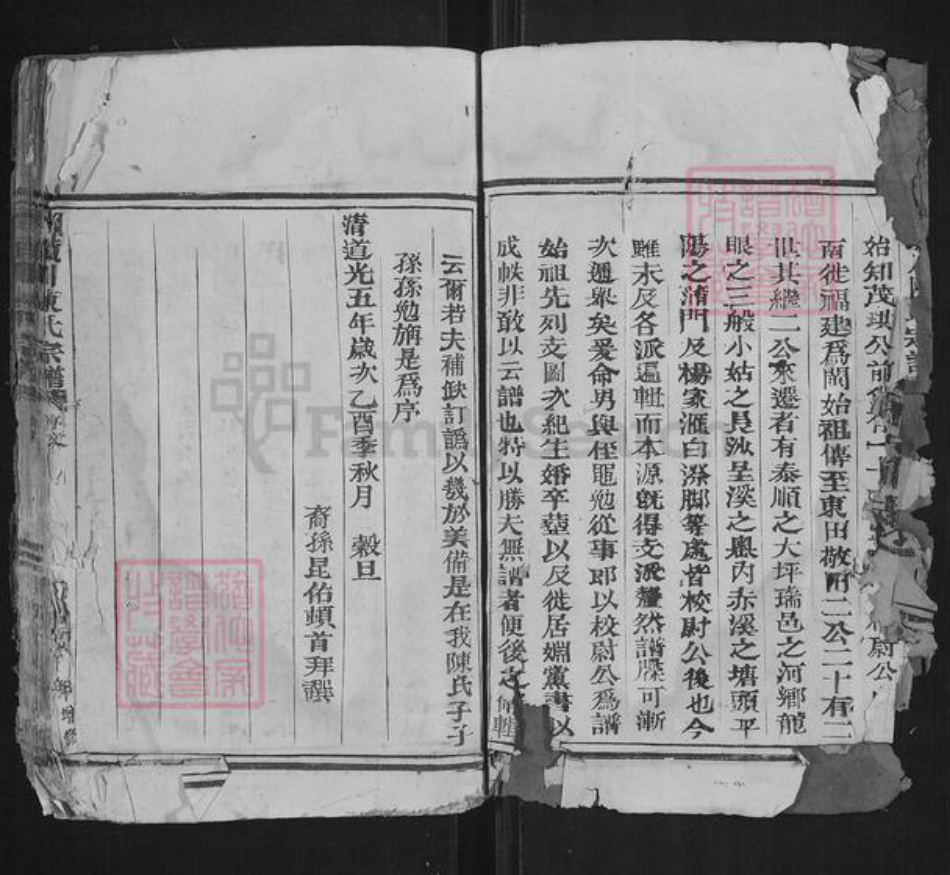 始知茂珙公前
尉公
南徙福建爲閩始祖傳至東田敬附二公二十有二
世其繼二公來遷者有泰順之大坪瑞邑之河鄉龍
眼之三般小姑之長沙呈溪之奧內赤溪之塘頭平
陽之浦門及楊家滙白㴱脚等處皆校尉公後也今
雖未及各派遍輯而本源旣得支派釐然譜牒可漸
次遡舉矣爰命男與侄黽勉從事卽以校尉公爲譜
始祖先列支圖次紀生婚卒塟以及徙居姻黨書以
成帙非敢以云譜也特以勝夫無譜者便後之
云爾若夫補缺訂譌以幾於美備是在我陳氏子子
孫孫勉旃是爲序
清道光五年歲次乙酉季秋月 穀旦
裔孫昆佑頓首拜譔
潁川陳氏宗譜
FamilySearch